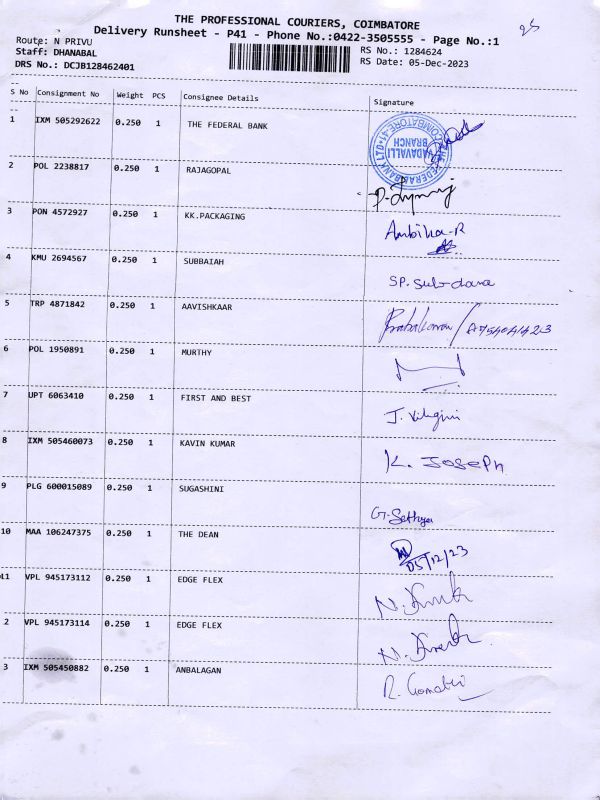 THE PROFESSIONAL COURIERS, COIMBATORE
Delivery Runsheet - P41 - Phone No.:0422-3505555 - Page No.:1
Route: N PRIVU
RS No.: 1284624
Staff: DHANABAL
RS Date: 05-Dec-2023
DRS No.: DCJB128462401
S No Consignment No Weight PCS Consignee Details Signature
1 IXM 505292622 0.250 1 THE FEDERAL BANK
VADAVALLI BRANCH
2 POL 2238817 0.250 1 RAJAGOPAL
3 PON 4572927 0.250 1 KK.PACKAGING Ambika-R
4 KMU 2694567 0.250 1 SUBBAIAH
5 TRP 4871842 0.250 1 AAVISHKAAR
6 POL 1950891 0.250 1 MURTHY
7 UPT 6063410 0.250 1 FIRST AND BEST
8 IXM 505460073 0.250 1 KAVIN KUMAR K. Joseph
9 PLG 600015089 0.250 1 SUGASHINI G. Sathya
10 MAA 106247375 0.250 1 THE DEAN 05/12/23
11 VPL 945173112 0.250 1 EDGE FLEX
2 VPL 945173114 0.250 1 EDGE FLEX
3 IXM 505450882 0.250 1 ANBALAGAN